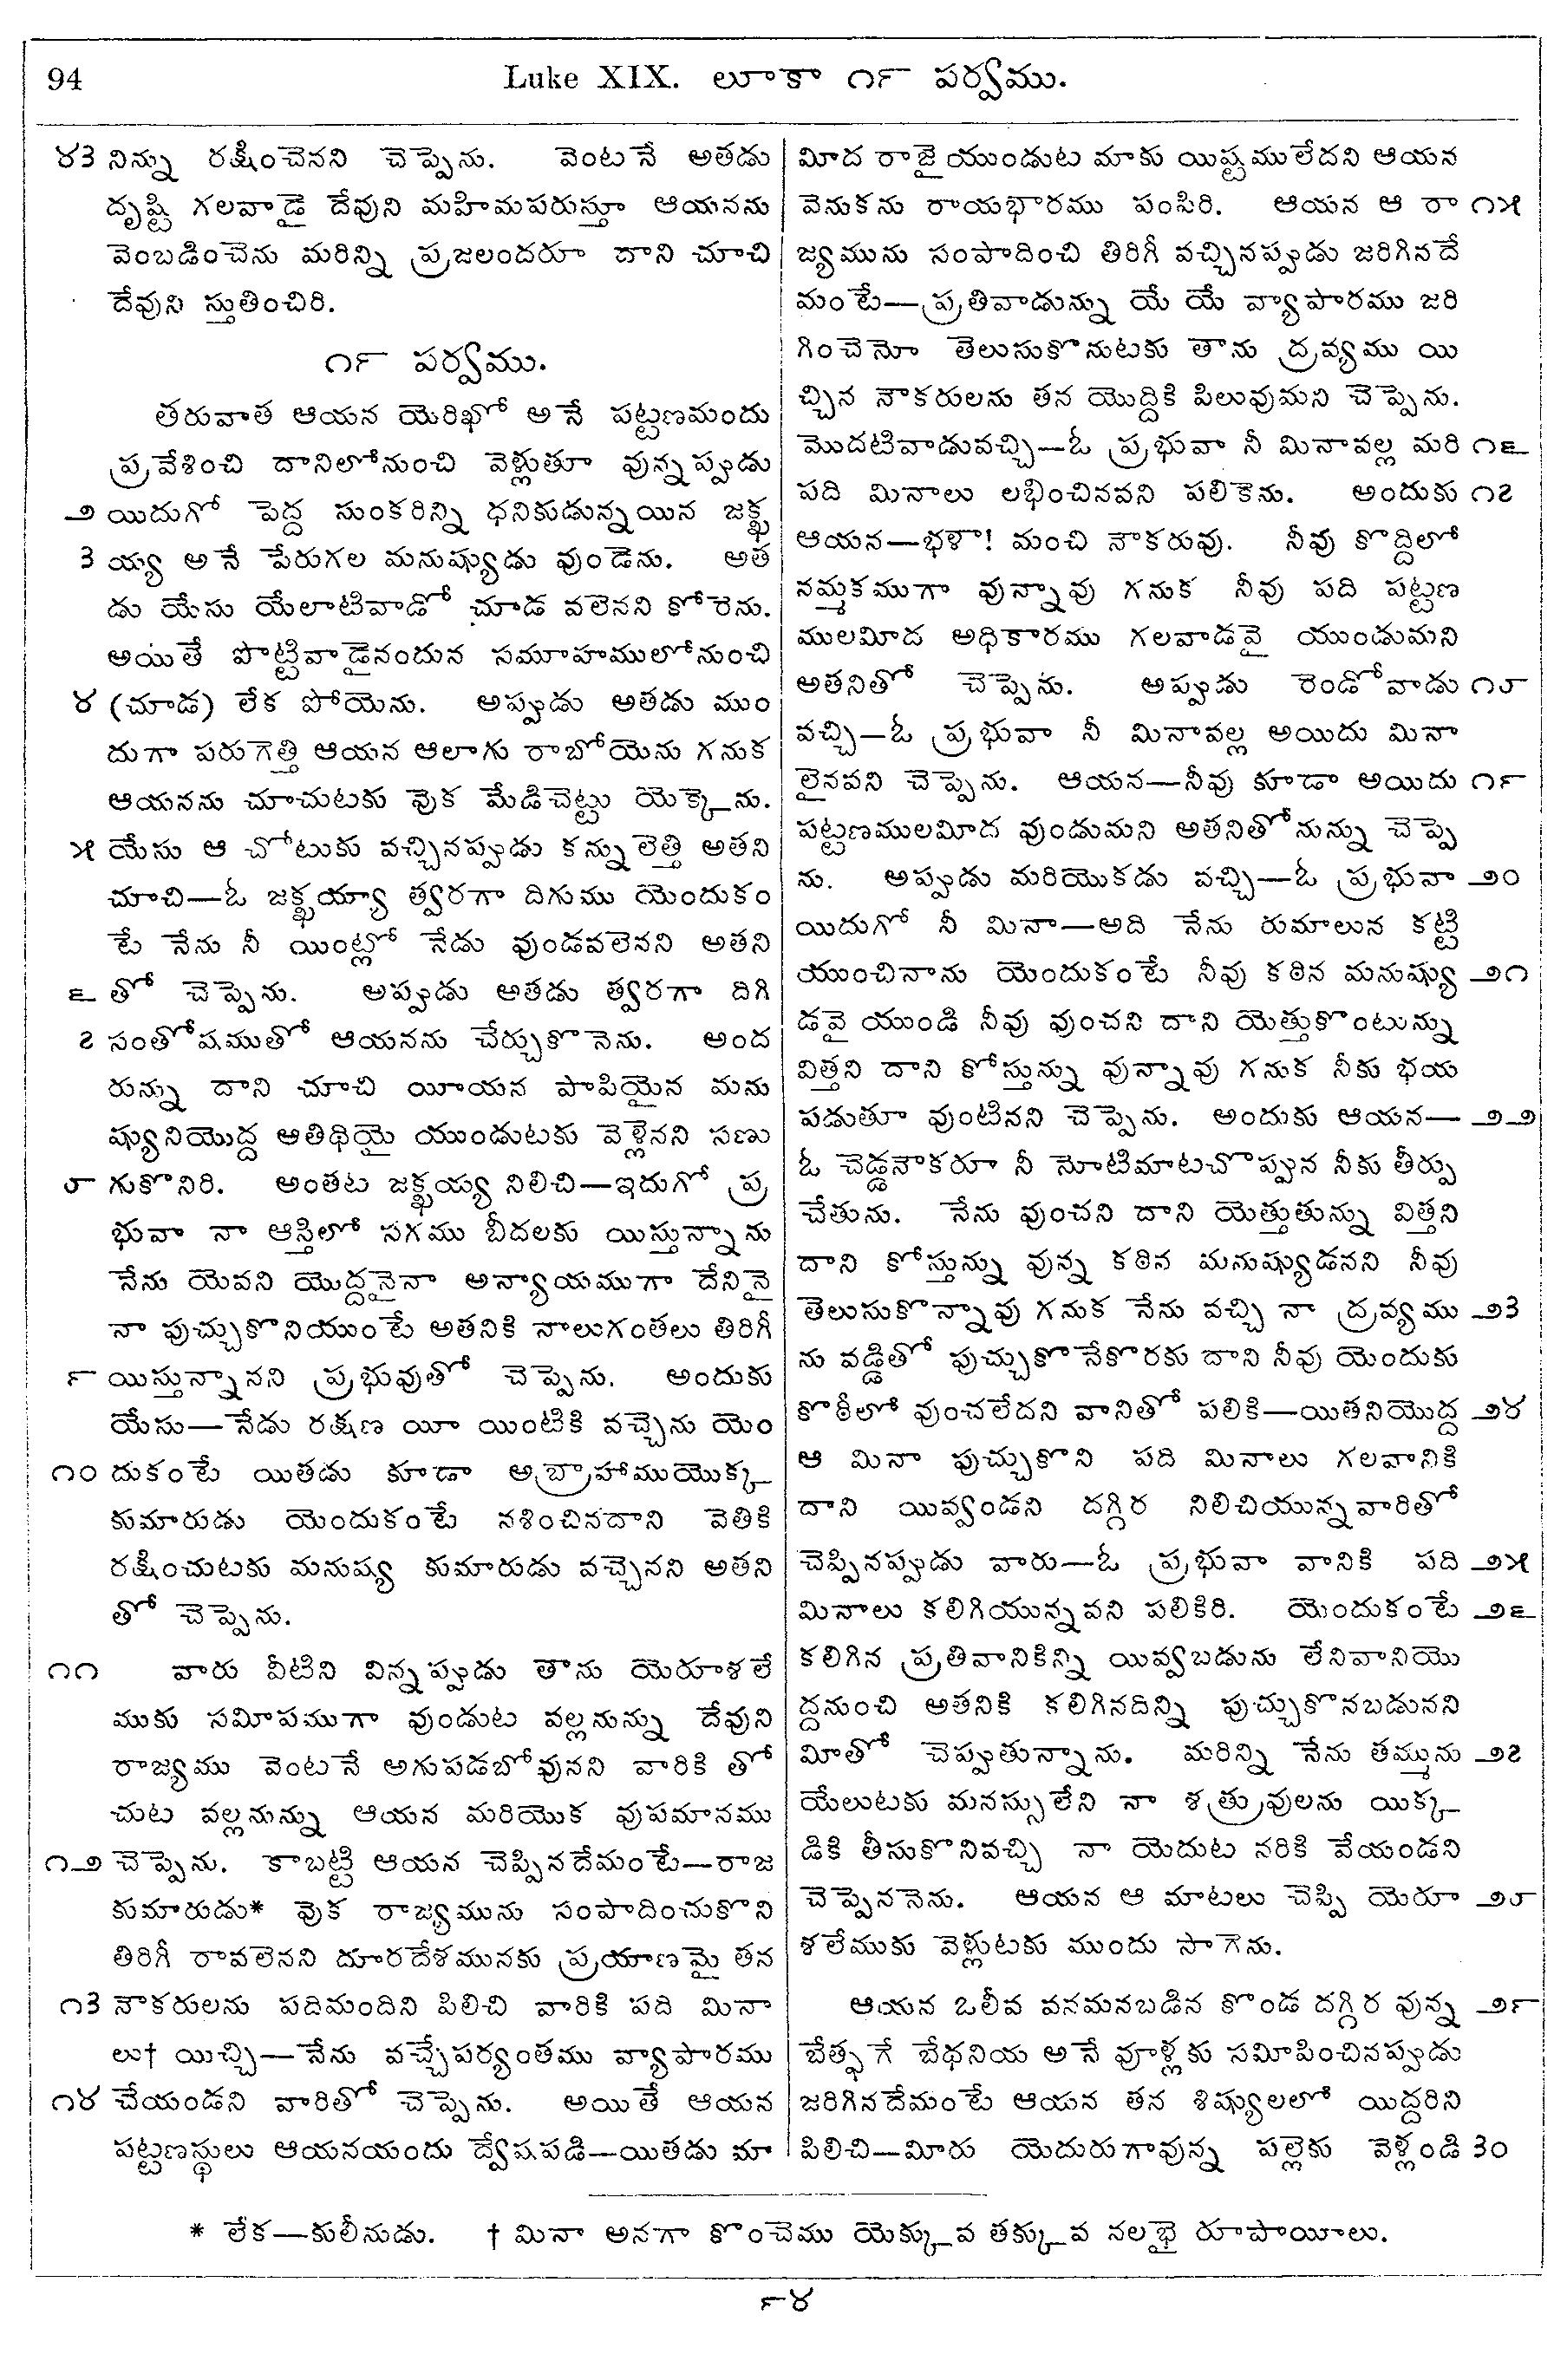 94
Luke XIX. లూకా ౧౯ పర్వము.
౪౩ నిన్ను రక్షించెనని చెప్పెను. వెంటనే అతడు
దృష్టి గలవాడై దేవుని మహిమపరుస్తూ ఆయనను
వెంబడించెను మరిన్ని ప్రజలందరూ దాని చూచి
దేవుని స్తుతించిరి.
౧౯ పర్వము.
తరువాత ఆయన యెరిఖో అనే పట్టణమందు
ప్రవేశించి దానిలోనుంచి వెళ్లుతూ వున్నప్పుడు
౨ యిదుగో పెద్ద సుంకరిన్ని ధనికుడున్నయిన జక్ఖ
౩ య్య అనే పేరుగల మనుష్యుడు వుండెను. అత
డు యేసు యేలాటివాడో చూడ వలెనని కోరెను.
అయితే పొట్టివాడైనందున సమూహములోనుంచి
౪ (చూడ) లేక పోయెను. అప్పుడు అతడు ముం
దుగా పరుగెత్తి ఆయన ఆలాగు రాబోయెను గనుక
ఆయనను చూచుటకు వుక మేడిచెట్టు యెక్కెను.
౫ యేసు ఆ చోటుకు వచ్చినప్పుడు కన్నులెత్తి అతని
చూచి—ఓ జక్ఖయ్యా త్వరగా దిగుము యెందుకం
టే నేను నీ యింట్లో నేడు వుండవలెనని అతని
౬ తో చెప్పెను. అప్పుడు అతడు త్వరగా దిగి
౭ సంతోషముతో ఆయనను చేర్చుకొనెను. అంద
రున్ను దాని చూచి యీయన పాపియైన మను
ష్యునియొద్ద ఆతిథియై యుండుటకు వెళ్లెనని సణు
౮ గుకొనిరి. అంతట జక్ఖయ్య నిలిచి—ఇదుగో ప్ర
భువా నా ఆస్తిలో సగము బీదలకు యిస్తున్నాను
నేను యెవని యొద్దనైనా అన్యాయముగా దేనినై
నా పుచ్చుకొనియుంటే అతనికి నాలుగంతలు తిరిగీ
౯ యిస్తున్నానని ప్రభువుతో చెప్పెను. అందుకు
యేసు—నేడు రక్షణ యీ యింటికి వచ్చెను యెం
౧౦ దుకంటే యితడు కూడా అబ్రాహాముయొక్క
కుమారుడు యెందుకంటే నశించినదాని వెతికి
రక్షించుటకు మనుష్య కుమారుడు వచ్చెనని అతని
తో చెప్పెను.
౧౧ వారు వీటిని విన్నప్పుడు తాను యెరూశలే
ముకు సమీపముగా వుండుట వల్లనున్ను దేవుని
రాజ్యము వెంటనే అగుపడబోవునని వారికి తో
చుట వల్లనున్ను ఆయన మరియొక వుపమానము
౧౨ చెప్పెను. కాబట్టి ఆయన చెప్పినదేమంటే—రాజ
కుమారుడు* వుక రాజ్యమును సంపాదించుకొని
తిరిగీ రావలెనని దూరదేశమునకు ప్రయాణమై తన
౧౩ నౌకరులను పదిమందిని పిలిచి వారికి పది మినా
లు† యిచ్చి—నేను వచ్చేపర్యంతము వ్యాపారము
౧౪ చేయండని వారితో చెప్పెను. అయితే ఆయన
పట్టణస్థులు ఆయనయందు ద్వేషపడి—యితడు మా
మీద రాజై యుండుట మాకు యిష్టములేదని ఆయన
వెనుకను రాయభారము పంపిరి. ఆయన ఆ రా ౧౫
జ్యమును సంపాదించి తిరిగీ వచ్చినప్పుడు జరిగినదే
మంటే—ప్రతివాడున్ను యే యే వ్యాపారము జరి
గించెనో తెలుసుకొనుటకు తాను ద్రవ్యము యి
చ్చిన నౌకరులను తన యొద్దికి పిలువుమని చెప్పెను.
మొదటివాడువచ్చి—ఓ ప్రభువా నీ మినావల్ల మరి ౧౬
పది మినాలు లభించినవని పలికెను. అందుకు ౧౭
ఆయన—భళా! మంచి నౌకరువు. నీవు కొద్దిలో
నమ్మకముగా వున్నావు గనుక నీవు పది పట్టణ
ములమీద అధికారము గలవాడవై యుండుమని
అతనితో చెప్పెను. అప్పుడు రెండోవాడు ౧౮
వచ్చి—ఓ ప్రభువా నీ మినావల్ల అయిదు మినా
లైనవని చెప్పెను. ఆయన—నీవు కూడా అయిదు ౧౯
పట్టణములమీద వుండుమని అతనితోనున్ను చెప్పె
ను. అప్పుడు మరియొకడు వచ్చి—ఓ ప్రభువా ౨౦
యిదుగో నీ మినా—అది నేను రుమాలున కట్టి
యుంచినాను యెందుకంటే నీవు కఠిన మనుష్యు ౨౧
డవై యుండి నీవు వుంచని దాని యెత్తుకొంటున్ను
విత్తని దాని కోస్తున్ను వున్నావు గనుక నీకు భయ
పడుతూ వుంటినని చెప్పెను. అందుకు ఆయన— ౨౨
ఓ చెడ్డనౌకరూ నీ నోటిమాటచొప్పున నీకు తీర్పు
చేతును. నేను వుంచని దాని యెత్తుతున్ను విత్తని
దాని కోస్తున్ను వున్న కఠిన మనుష్యుడనని నీవు
తెలుసుకొన్నావు గనుక నేను వచ్చి నా ద్రవ్యము ౨౩
ను వడ్డితో పుచ్చుకొనేకొరకు దాని నీవు యెందుకు
కొఠీలో వుంచలేదని వానితో పలికి—యితనియొద్ద ౨౪
ఆ మినా పుచ్చుకొని పది మినాలు గలవానికి
దాని యివ్వండని దగ్గిర నిలిచియున్నవారితో
చెప్పినప్పుడు వారు—ఓ ప్రభువా వానికి పది ౨౫
మినాలు కలిగియున్నవని పలికిరి. యెందుకంటే ౨౬
కలిగిన ప్రతివానికిన్ని యివ్వబడును లేనివానియొ
ద్దనుంచి అతనికి కలిగినదిన్ని పుచ్చుకొనబడునని
మీతో చెప్పుతున్నాను. మరిన్ని నేను తమ్మును ౨౭
యేలుటకు మనస్సులేని నా శత్రువులను యిక్క
డికి తీసుకొనివచ్చి నా యెదుట నరికి వేయండని
చెప్పెననెను. ఆయన ఆ మాటలు చెప్పి యెరూ ౨౮
శలేముకు వెళ్లుటకు ముందు సాగెను.
ఆయన ఒలీవ వనమనబడిన కొండ దగ్గిర వున్న ౨౯
బేత్ఫగే బేథనియ అనే వూళ్లకు సమీపించినప్పుడు
జరిగినదేమంటే ఆయన తన శిష్యులలో యిద్దరిని
పిలిచి—మీరు యెదురుగావున్న పల్లెకు వెళ్లండి ౩౦
* లేక—కులీనుడు. † మినా అనగా కొంచెము యెక్కువ తక్కువ నలభై రూపాయీలు.
౯౪